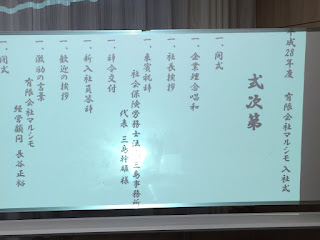 平成28年度　有限会社マルシモ 入社式
式次第
一、開式
一、企業理念唱和
一、社長挨拶
一、来賓祝辞
社会保険労務士法人 三島事務所
代表 三島幹雄 様
一、辞令交付
一、新入社員答辞
一、歓迎の挨拶
一、激励の言葉
有限会社マルシモ
経営顧問 長谷正裕
一、閉式